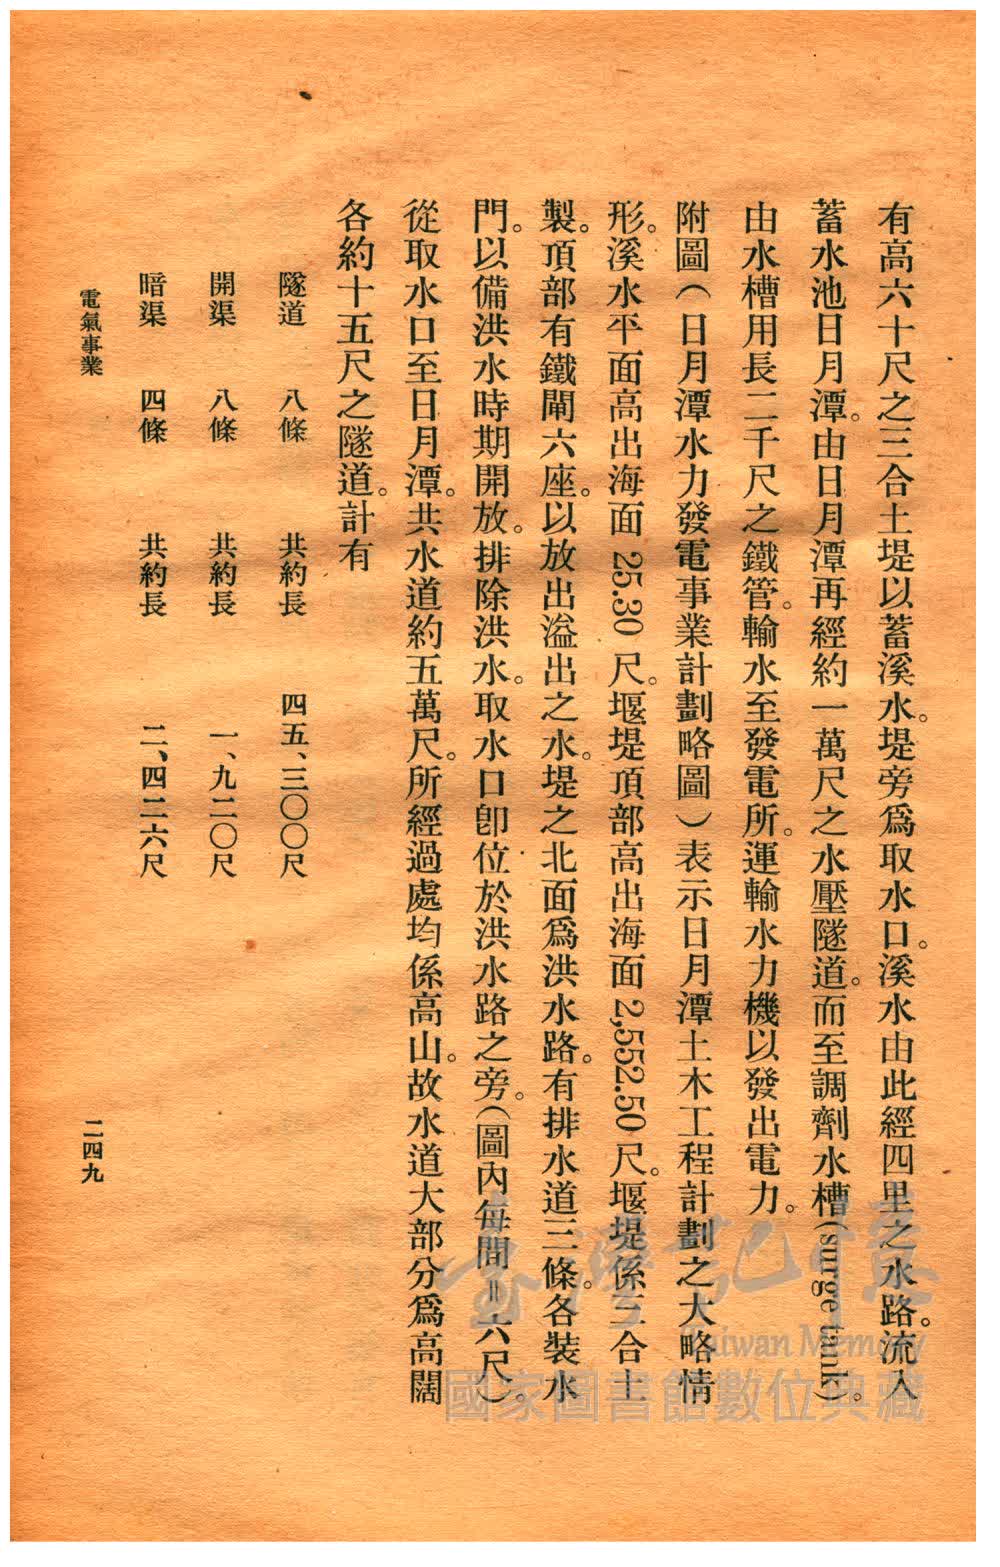 有高六十尺之三合土堤以蓄溪水。堤旁爲取水口。溪水由此經四里之水路。流入
蓄水池日月潭。由日月潭再經約一萬尺之水壓隧道。而至調劑水槽(surge tank)。
由水槽用長二千尺之鐵管。輸水至發電所。運輸水力機以發出電力。
附圖(日月潭水力發電事業計劃略圖)表示日月潭土木工程計劃之大略情
形。溪水平面高出海面 25.30 尺。堰堤頂部高出海面 2,552.50 尺。堰堤係三合土
製。頂部有鐵閘六座。以放出溢出之水。堤之北面爲洪水路。有排水道三條。各裝水
門。以備洪水時期開放。排除洪水。取水口卽位於洪水路之旁。(圖內每間=六尺)。
從取水口至日月潭。共水道約五萬尺。所經過處均係高山。故水道大部分爲高闊
各約十五尺之隧道。計有
隧道 八條 共約長 四五、三〇〇尺
開渠 八條 共約長 一、九二〇尺
暗渠 四條 共約長 二、四二六尺
電氣事業 二四九
臺灣記憶
Taiwan Memory
國家圖書館數位典藏